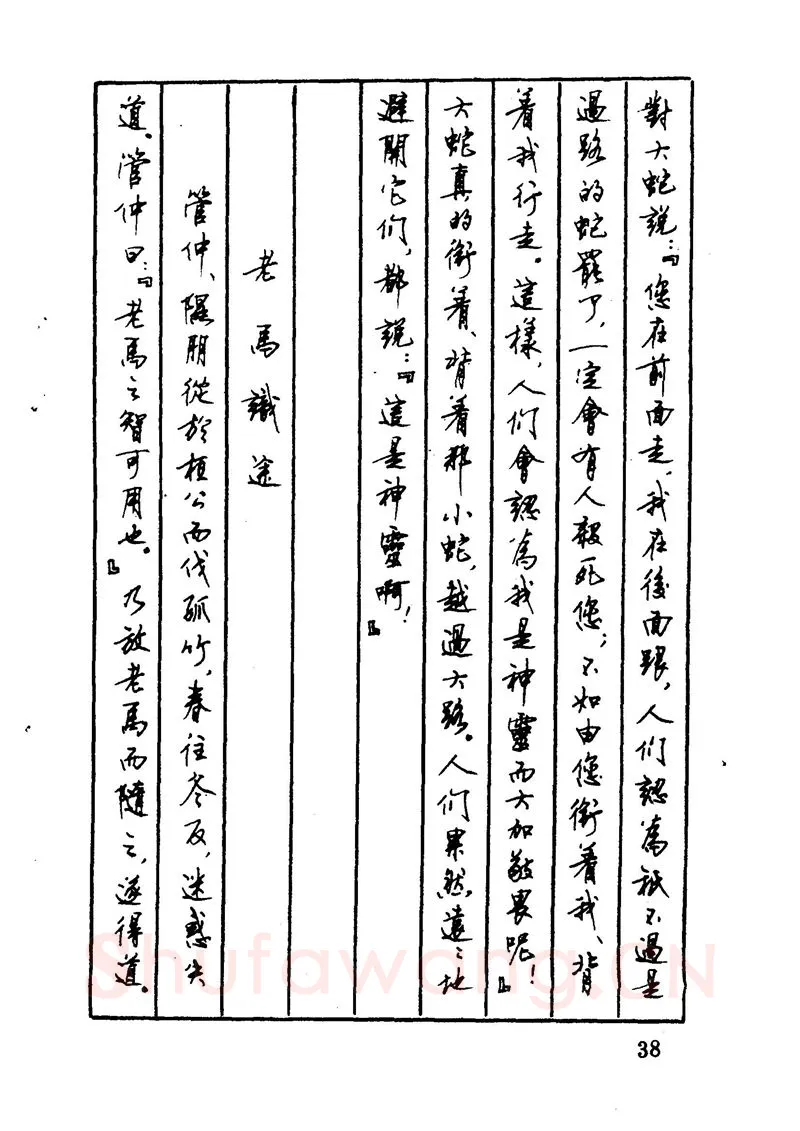 對大蛇說：『您在前面走，我在後面跟，人們認為祇不過是
過路的蛇罷了，一定會有人殺死您；不如由您銜着我、背
着我行走。這樣，人們會認為我是神靈而大加敬畏呢！』
大蛇真的銜着、背着那小蛇，越過大路。人們果然遠遠地
避開它們，都說：『這是神靈啊！』
老馬識途
管仲、隰朋從於桓公而伐孤竹，春往冬反，迷惑失
道。管仲曰：『老馬之智可用也。』乃放老馬而隨之，遂得道。
38
Shufawang.CN